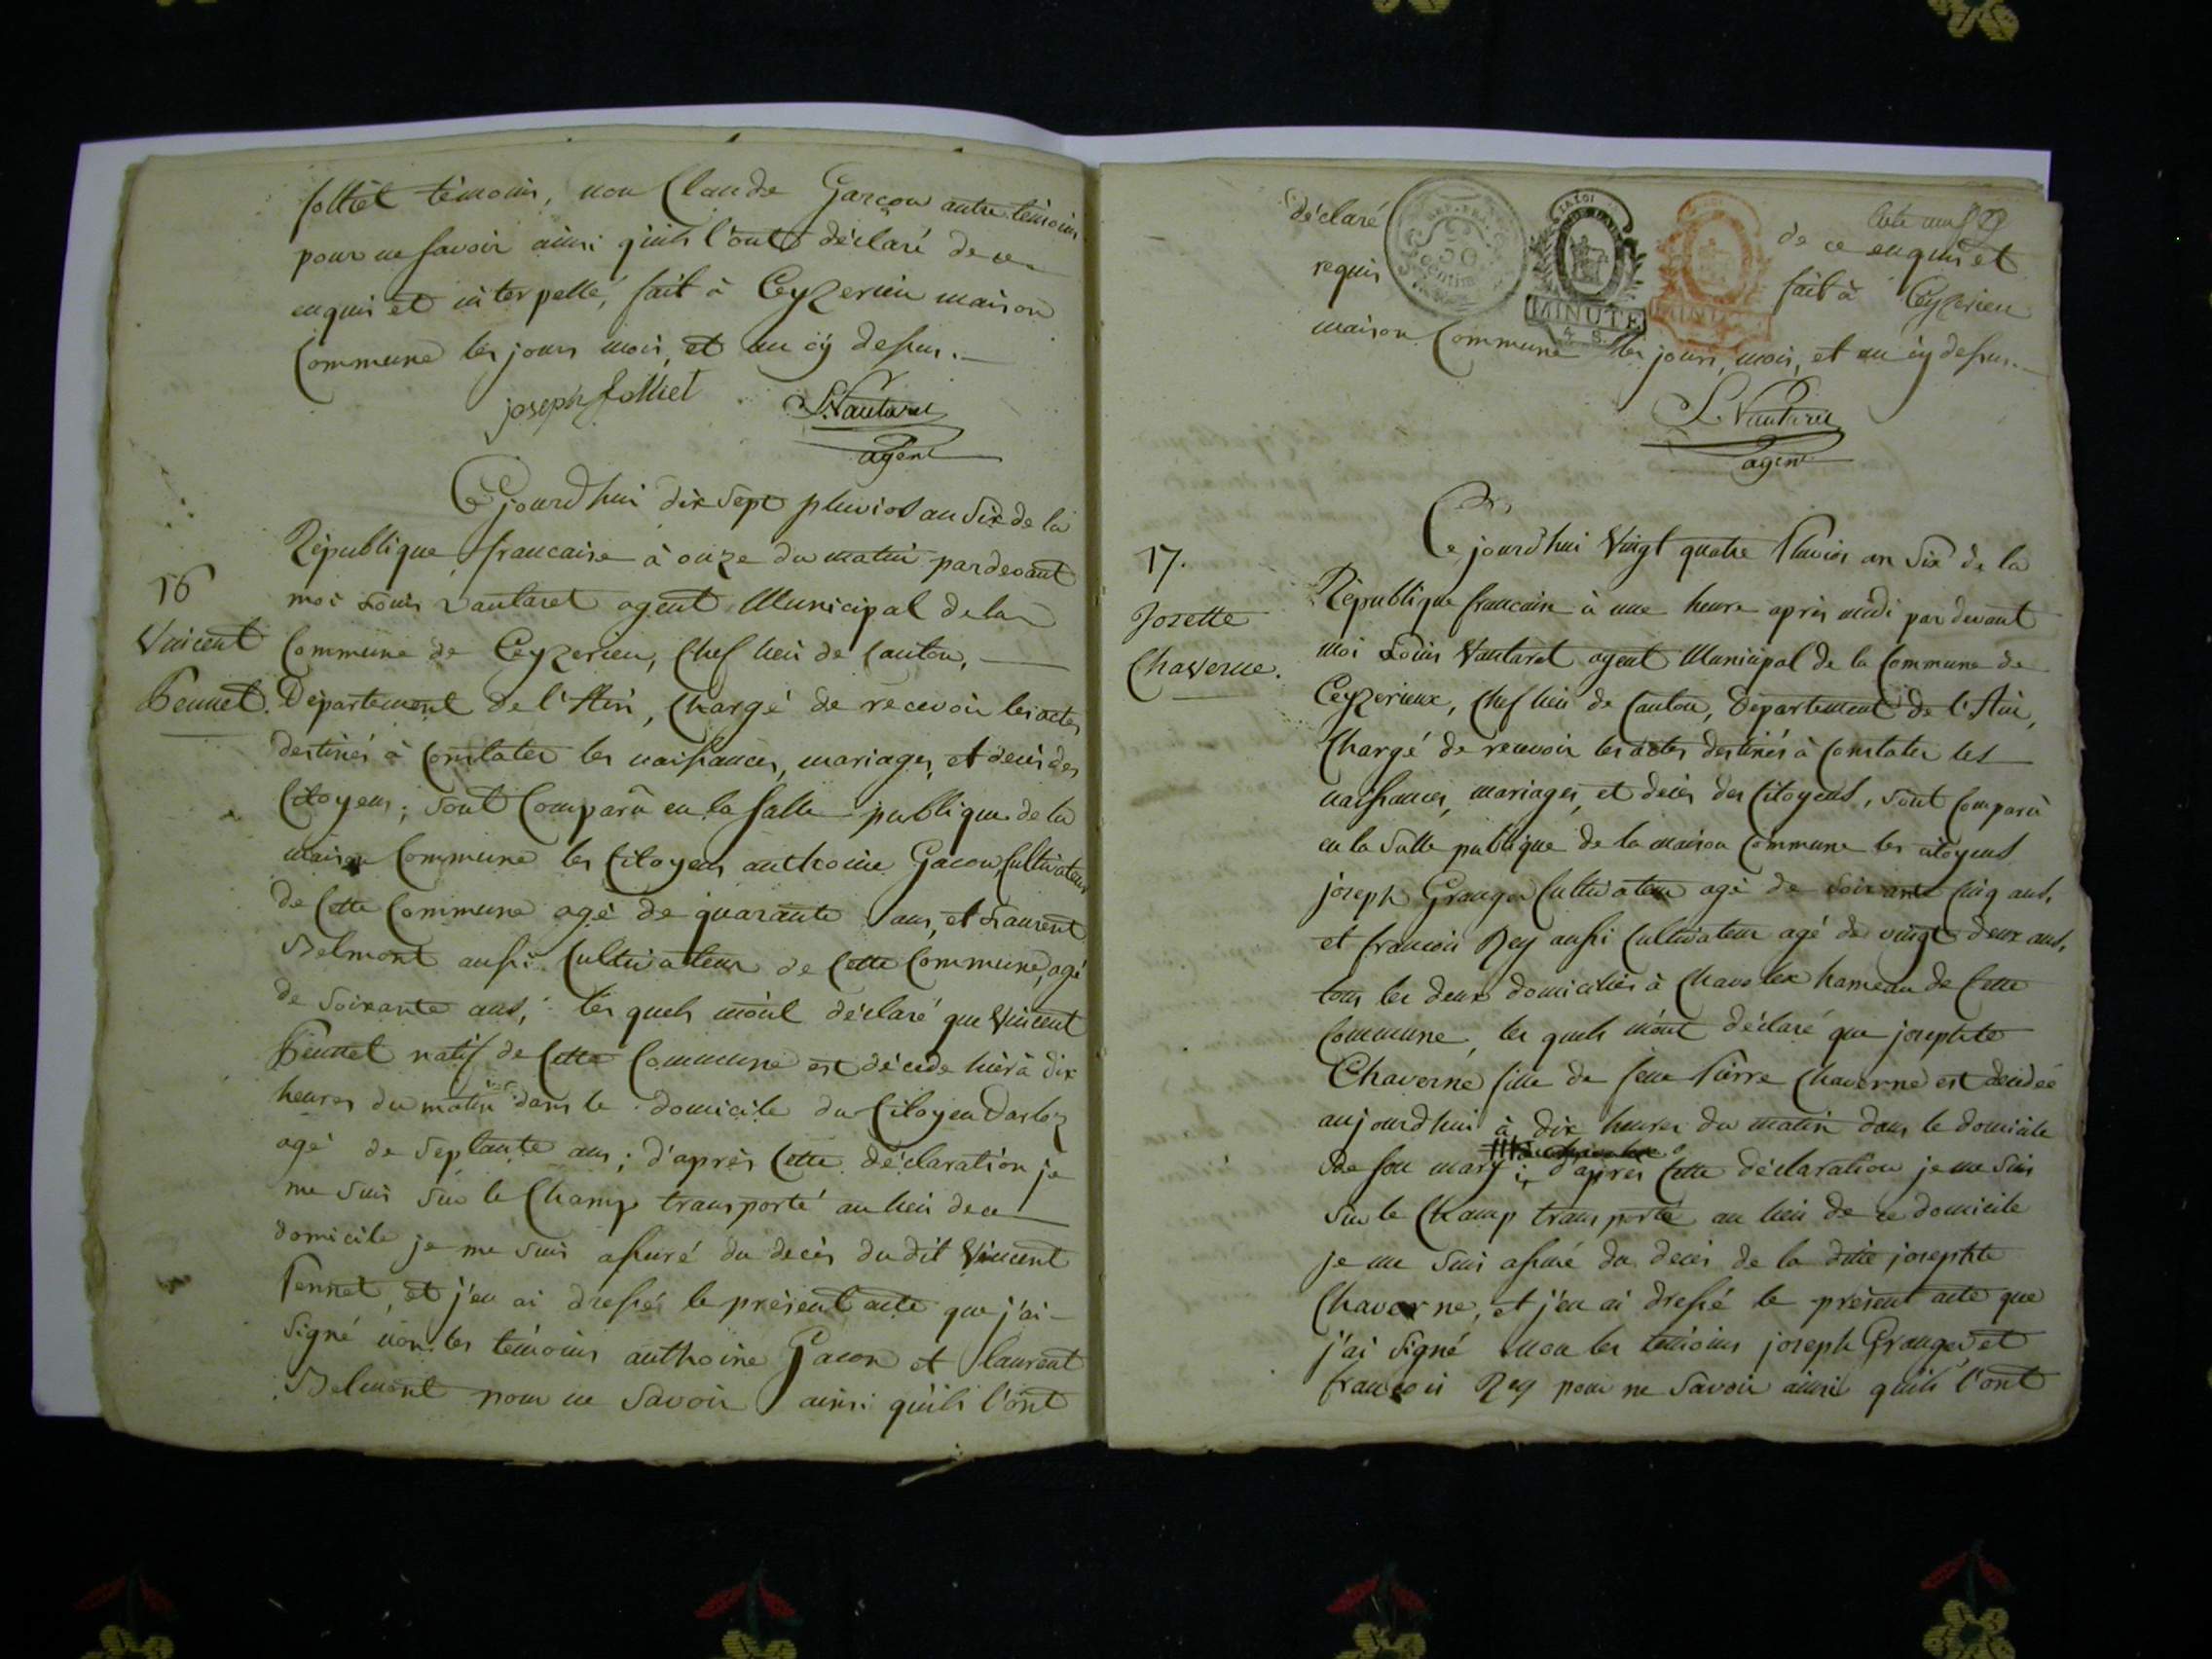 folliet témoin, non Claude Garçon autre témoin
pour ne savoir ainsi quils l'ont déclaré de ce
enquis et interpellé, fait à Ceyzerieu maison
Commune les jours mois, et an cÿ dessus.
joseph folliet L. Vautaret
agent
Cejourdhui dix sept pluvios an Six de la
République francaise à onze du matin pardevant
moi Louis Vautaret agent Municipal de la
16
Vincent
Pennet.
Commune de Ceyzerieu, Chef lieu de Canton,
Département de l'Ain, Chargé de recevoir les actes
destinés à Constater les naissances, mariages, et decès des
Citoyens; Sont Comparû en la Salle publique de la
maison Commune les Citoyens anthoine Gacon, Cultivateur
de Cette Commune agé de quarante ans, et Laurent
Belmont aussi Cultivateur de Cette Commune, agé
de Soixante ans; les quels m'ont déclaré que Vincent
Pennet natif de Cette Commune est décédé hier à dix
heures du matin dans le domicile du Citoyen Darloz
agé de Septante ans; d'après Cette déclaration je
me Suis Sur le Champ transporté au lieu de ce
domicile je me Suis assuré du decès du dit Vincent
Pennet, et j'en ai dressé le présent acte que j'ai
Signé non les témoins anthoine Gacon et laurent
Belmont pour ne Savoir ainsi quils l'ont
déclaré de ce enquis et
requis fait à Ceyzerieu
maison Commune les jours, mois, et an cy dessus.
REP. FRA.
50
Centim
LA LOI
MINUTE
L. Vautaret
agent
17.
Josette
Chaverne.
Ce jourdhui Vingt quatre Pluvios an Six de la
République francaise à une heure après midi par devant
moi Louis Vautaret agent Municipal de la Commune de
Ceyzerieux, Chef lieu de Canton, Département de l'Ain,
Chargé de recevoir les actes destinés à Constater les
naissances, mariages, et decès des Citoyens, Sont Comparû
en la Salle publique de la maison Commune les citoyens
joseph Granger Cultivateur agé de Soixante Cinq ans,
et francois Rey aussi Cultivateur agé de vingt deux ans,
tous les deux domiciliés à Chavolex hameau de Cette
Commune, les quels m'ont déclaré que josephte
Chaverne fille de feu Pierre Chaverne est décédée
aujourdhui à dix heures du matin dans le domicile
de son mary; d'après Cette déclaration je me Suis
Sur le Champ transporté au lieu de ce domicile
je me Suis assuré du decès de la dite josephte
Chaverne, et j'en ai dressé le présent acte que
j'ai Signé non les témoins joseph Granger et
francois Rey pour ne Savoir ainsi quils l'ont